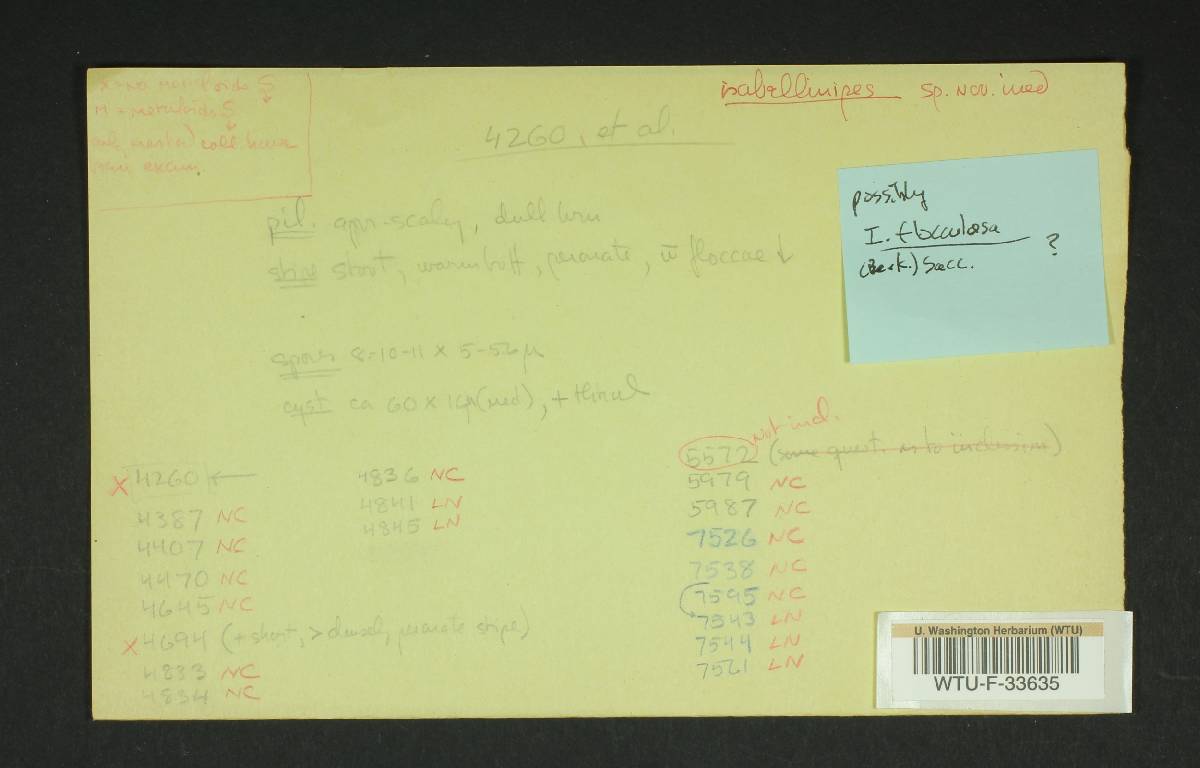 isabellinipes sp. nov. ined
4260, et al.
pil. appr-scaly, dull brn
stipe short, warm buff, peronate, w̄ floccae ↓
spores 8-10-11 x 5-5.5 µ
cyst ca 60 x (med), + thinwl
possibly
I. flocculosa
(Berk.) Sacc. ?
not incl.
X 4260 ←
4387 NC
4407 NC
4470 NC
4645 NC
X 4694 (+ short, > densely peronate stipe)
4833 NC
4834 NC
4836 NC
4841 LN
4845 LN
5572 (some quest. as to inclusion)
5979 NC
5987 NC
7526 NC
7538 NC
7595 NC
7543 LN
7544 LN
7561 LN
U. Washington Herbarium (WTU)
WTU-F-33635